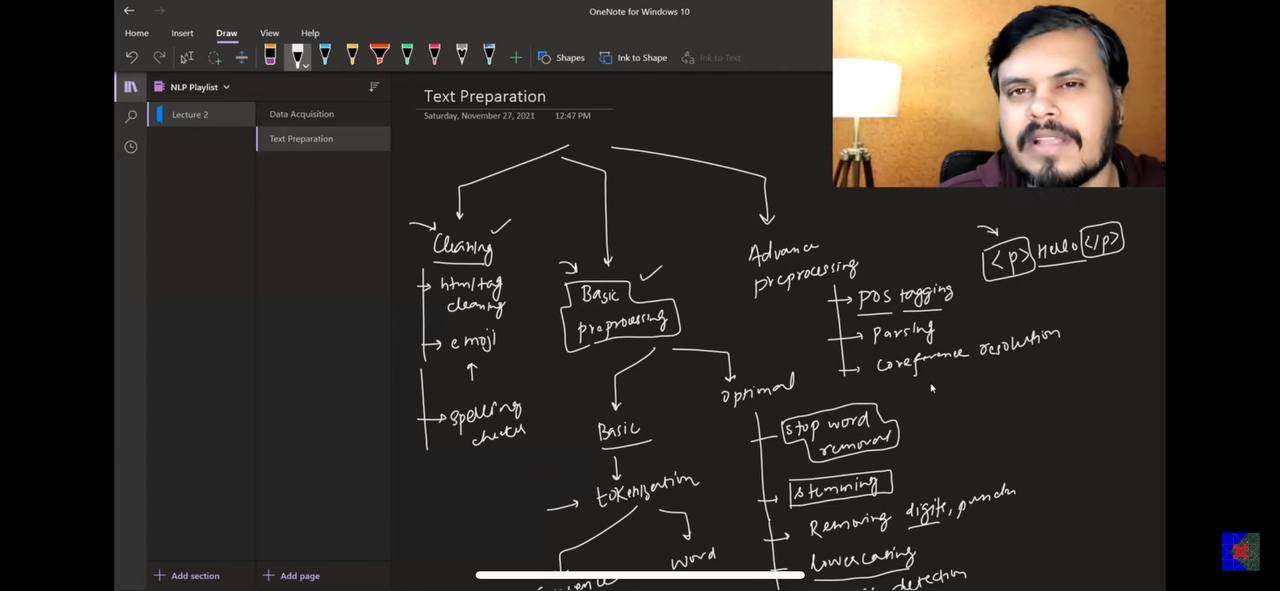 OneNote for Windows 10
Home Insert Draw View Help
Shapes Ink to Shape Ink to Text
NLP Playlist
Lecture 2
Data Acquisition
Text Preparation
Text Preparation
Saturday, November 27, 2021 12:47 PM
Cleaning
html/tag
cleaning
emoji
spelling
Basic
preprocessing
Basic
tokenization
word
optimal
stop word
removal
stemming
Removing digits,
lowercasing
detection
Advance
preprocessing
POS tagging
Parsing
Coreference resolution
<p> Hello </p>
Add section
Add page